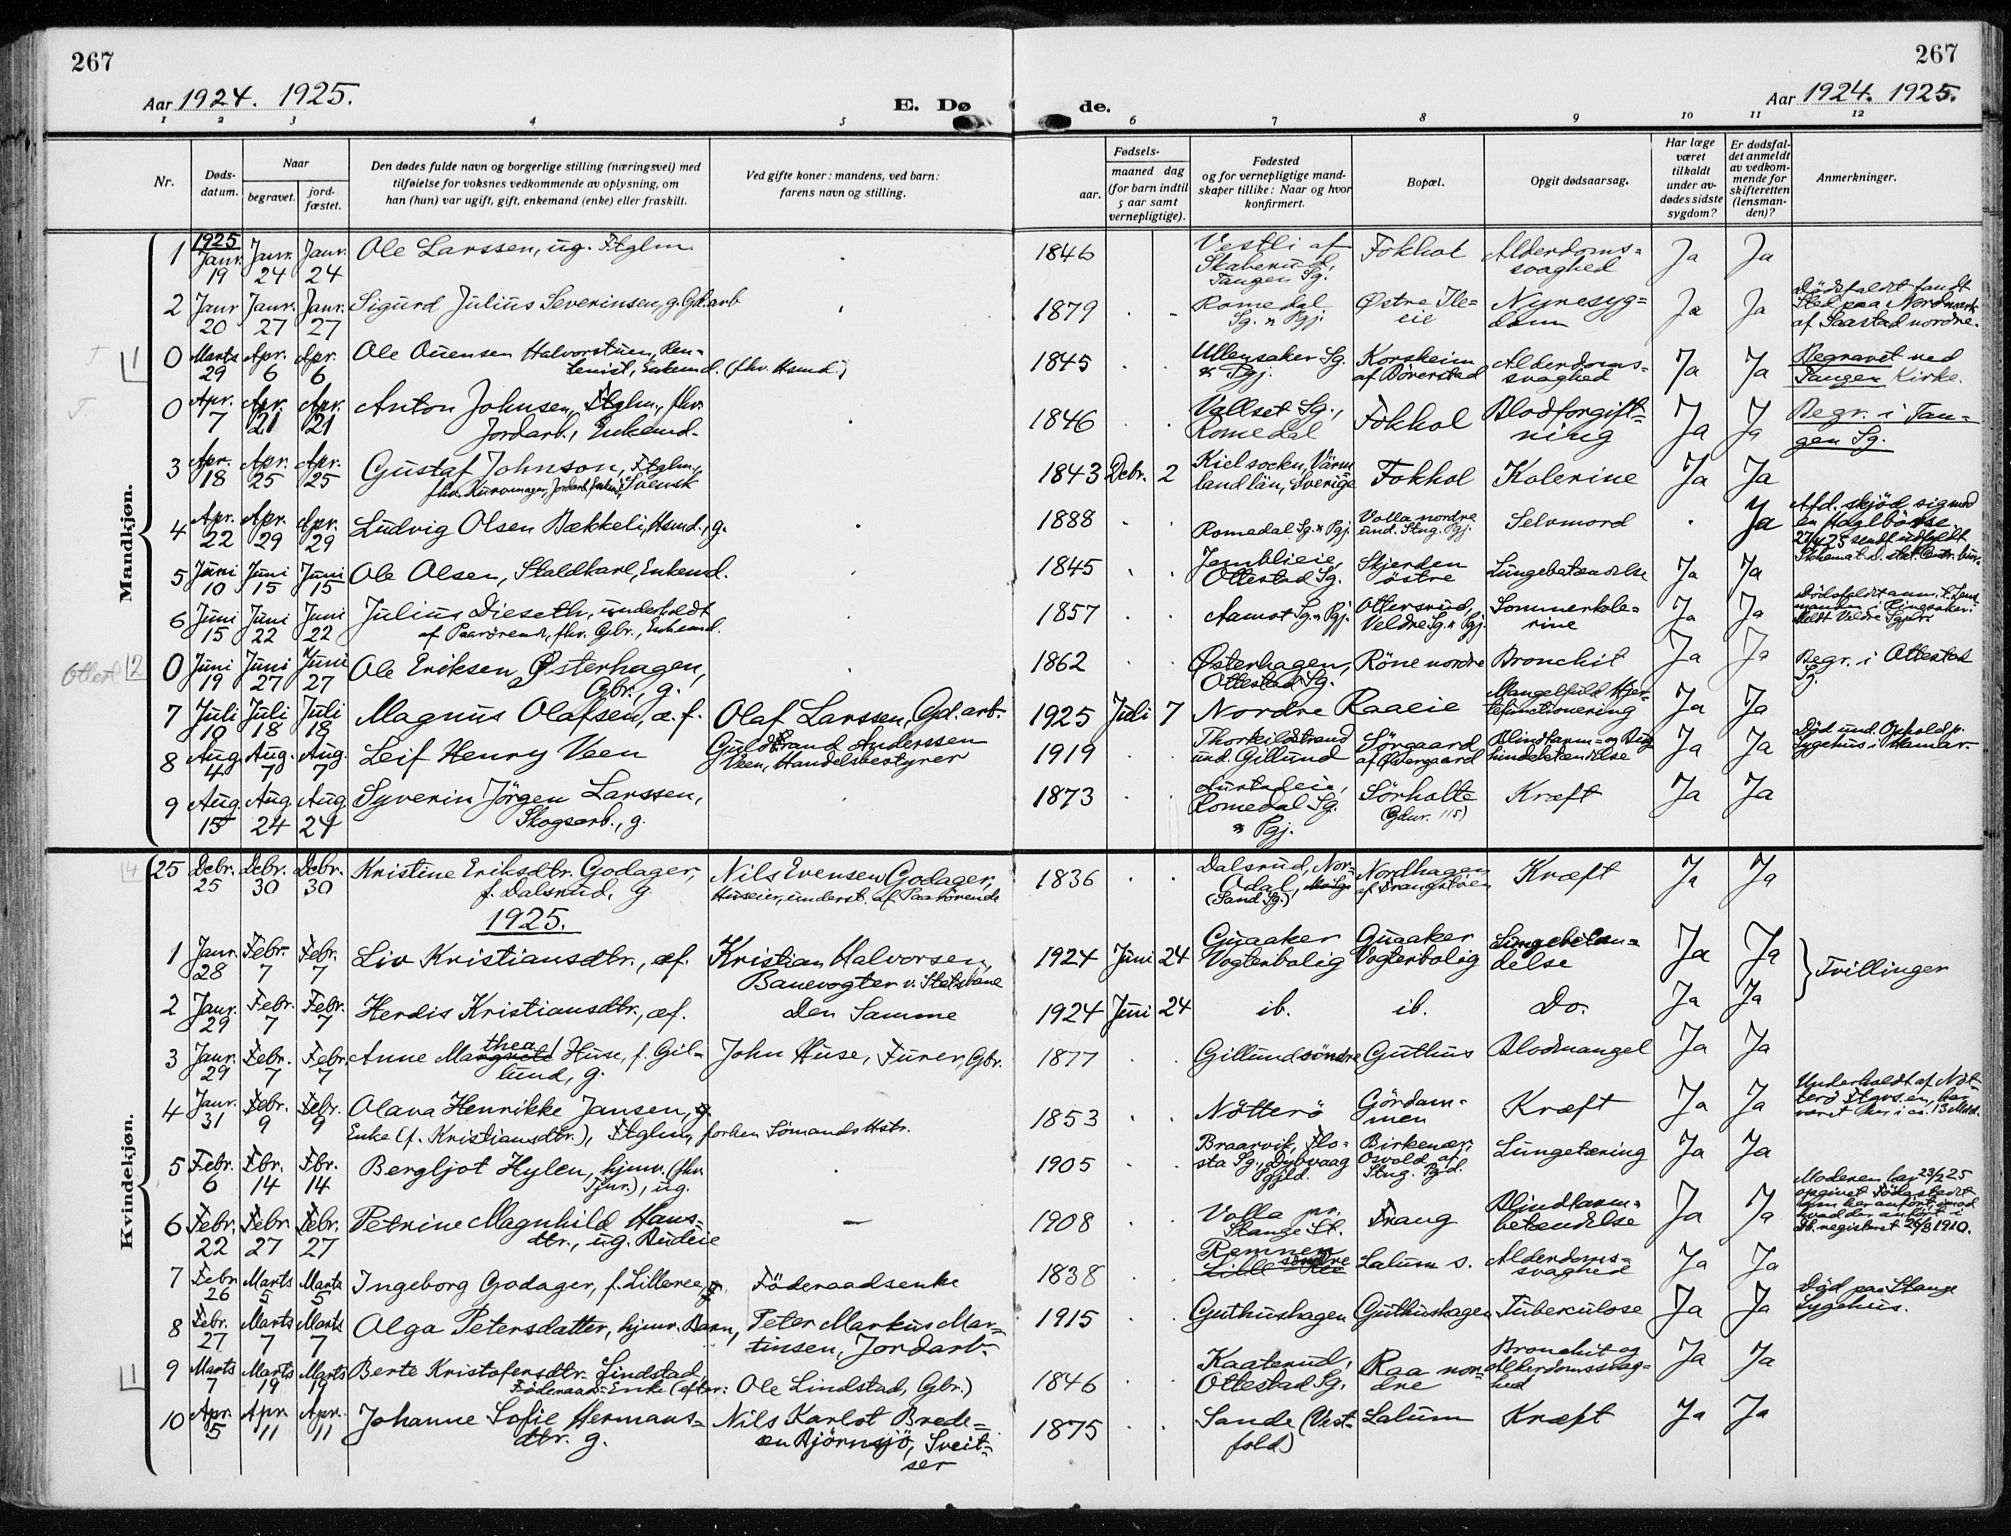 267
267
Aar 1924. 1925.
E. Dø de.
Aar 1924. 1925.
1 2 3 4 5 6 7 8 9 10 11 12
Nr.
Døds-
datum.
Naar
begravet.
jord-
fæstet.
Den dødes fulde navn og borgerlige stilling (næringsvei) med
tilføielse for voksnes vedkommende av oplysning, om
han (hun) var ugift, gift, enkemand (enke) eller fraskilt.
Ved gifte koner: mandens, ved barn:
farens navn og stilling.
Fødsels-
aar.
maaned dag
(for barn indtil
5 aar samt
vernepligtige).
Fødested
og for vernepligtige mand-
skaper tillike: Naar og hvor
konfirmert.
Bopæl.
Opgit dødsaarsag.
Har læge
været
tilkaldt
under av-
dødes sidste
sygdom?
Er dødsfal-
det anmeldt
av vedkom-
mende for
skifteretten
(lensman-
den)?
Anmerkninger.
Mandkjøn.
1925
1 Janr. 19 Janr. 24 Janr. 24 Ole Larssen, ug. Ftglm. 1846 Vestli af
Skaberud,
Tangen Sg. Fokhol Alderdoms-
svaghed Ja Ja
2 Janr 20 Janr. 27 Janr. 27 Sigurd Julius Severinsen, g. Gd.arb 1879 Romedal
Sg. & Pgj. Østre Ile-
eie Nyresyg-
dom Ja Ja Dödsfaldet fandt
Sted paa Nordmark
af Saastad nordre.
0 Marts 29 Apr. 6 Apr. 6 Ole Ouensen Halvorstuen, Ren-
tenist, Enkemd. (fhv. Hsmd.) 1845 Ullensaker Sg.
& Pgj. Korsheim
af Böverstad Alderdoms-
svaghed Ja Ja Begravet ved
Tangen Kirke.
0 Apr. 7 Apr. 21 Apr. 21 Anton Johnsen, Ftglm., fhv.
Jordarb., Enkemd. 1846 Vallset Sg.,
Romedal Fokhol Blodforgift-
ning Ja Ja Begr. i Tan-
gen Sg.
3 Apr. 18 Apr. 25 Apr. 25 Gustaf Johnson, Ftglm.,
fhv. Kurvmager, Jordarb., Enkemd., Svensk 1843 Debr. 2 Kiel socku, Värm
land län, Sverige Fokhol Kolerine Ja Ja
4 Apr. 22 Apr. 29 Apr. 29 Ludvig Olsen Bækkeli, Hsmd., g. 1888 Romedal Sg. & Pgj. Volla nordre
und. Stng. Pgj. Selvmord . Ja Afd. skjöd sig med
en Haglbösse.
27/4 25 sendt udfyldt
Skhema t. d. stat. Centr.bur.
5 Juni 10 Juni 15 Juni 15 Ole Olsen, Staldkarl, Enkemd. 1845 Jemblieie,
Ottestad Sg. Skjerden
østre Lungebetændelse Ja Ja
6 Juni 15 Juni 22 Juni 22 Julius Dieseth, underholdt
af Paarörend, fhv. Gbr., Enkemd. 1857 Aamot Sg. & Pgj. Ottersrud,
Veldre Sg. & Pgj. Sommerkole-
rine Ja Ja Dödsfaldet anm. t. Lens
manden i Ringsaker.
0 Juni 19 Juni 27 Juni 27 Ole Eriksen Østerhagen,
Gbr., g. 1862 Østerhagen,
Ottestad Sg. Röne nordre Bronchit Ja Ja Begr. i Ottestad
Sg.
7 Juli 10 Juli 18 Juli 18 Magnus Olafsen, æ.f. Olaf Larssen, Gd.arb. 1925 Juli 7 Nordre Raaeie Mangelfuld Hjer-
tefunctionering Ja Ja
8 Aug. 4 Aug. 7 Aug. 7 Leif Henry Veen Guldbrand Anderssen
Veen, Handelsbestyrer 1919 Thorkildstrand
und. Gillund Sörgaard
af Övergaard Blindtarm- og Bug
hindebetændelse Ja Ja Död und. Ophold p.
Sygehus i Hamar.
9 Aug. 15 Aug. 24 Aug. 24 Syverin Jörgen Larssen,
Skogsarb., g. 1873 Aurstadeie,
Romedal Sg.
& Pgj. Sörholte
(Gdnr. 115) Kræft Ja Ja
Kvindekjøn.
25 Debr. 25 Debr. 30 Debr. 30 Kristine Eriksdtr. Godager,
f. Dalsrud, g. Nils Evensen Godager,
Huseier, underst. af Paarörende 1836 Dalsrud, Nor-
Odal,
(Sand Sg.) Nordhagen
af Frangstöen Kræft Ja Ja
1925.
1 Janr. 28 Febr. 7 Febr. 7 Liv Kristiansdtr., æf. Kristian Halvorsen,
Banevogter v. Statsbane 1924 Juni 24 Guaaker
Vogterbolig Guaaker
Vogterbolig Lungebetæn-
delse Ja Ja Tvillinger
2 Janr. 29 Febr. 7 Febr. 7 Herdis Kristiansdtr., æf. Den Samme 1924 Juni 24 ib. ib. Do. Ja Ja
3 Janr. 29 Febr. 7 Febr. 7 Anne Marthea Huse, f. Gil-
lund, g. John Huse, Furer, Gbr. 1877 Gillund söndre Guthus Blodmangel Ja Ja
4 Janr. 31 Febr. 9 Febr. 9 Olava Henrikke Jansen,
Enke (f. Kristiansdtr.), Ftglm, forhen Sömands Hstr. 1853 Nötterö Gördam-
men Kræft Ja Ja Underholdt af Nöt-
terö Ftgvs.en, har
været her i ca. 13 Mdr.
5 Febr. 6 Fbr. 14 Fbr. 14 Bergljot Hylen, hjmv. (fhv.
Tjnr.), ug. 1905 Braarvik, Flo-
sta Sg., Dybvaag
Pgjld. Birkenær,
Osvold af
Stng. Pgd. Lungetæring Ja Ja
6 Febr. 22 Febr. 27 Febr. 27 Petrine Magnhild Hans-
dtr., ug. Budeie — 1908 Volla nr.
Stange St. Frang Blindtarm-
betændelse Ja Ja Moderen har 23/2 25
opgivet Födestedet
som her anfört, imod
hvad der anfört i
Db. registeret 26/3 1910.
7 Febr 26 Marts 5 Marts 5 Ingeborg Godager, f. Lilleree, Föderaadsenke 1838 Remnen
söndre Lalum s. Alderdoms-
svaghed Ja Ja
8 Febr. 27 Marts 7 Marts 7 Olga Petersdatter, hjmv. Barn, Peter Markus Mar-
tinsen, Jordarb. 1915 Guthushagen Guthushagen Tuberculose Ja Ja Död paa Stange
Sygehus.
9 Marts 7 Marts 19 Marts 19 Berte Kristofersdtr. Lindstad,
Föderaads-Enke (efter: Ole Lindstad, Gbr.) 1846 Kaaterud,
Ottestad Sg. Raa nor-
dre Bronchit og
Alderdomssvag-
hed Ja Ja
10 Apr. 5 Apr. 11 Apr. 11 Johanne Sofie Hermans-
dtr. g. Nils Karlot Brede-
sen Björnsjö, Sveit-
ser 1875 Sande (Vest-
fold) Lalum Kræft Ja Ja